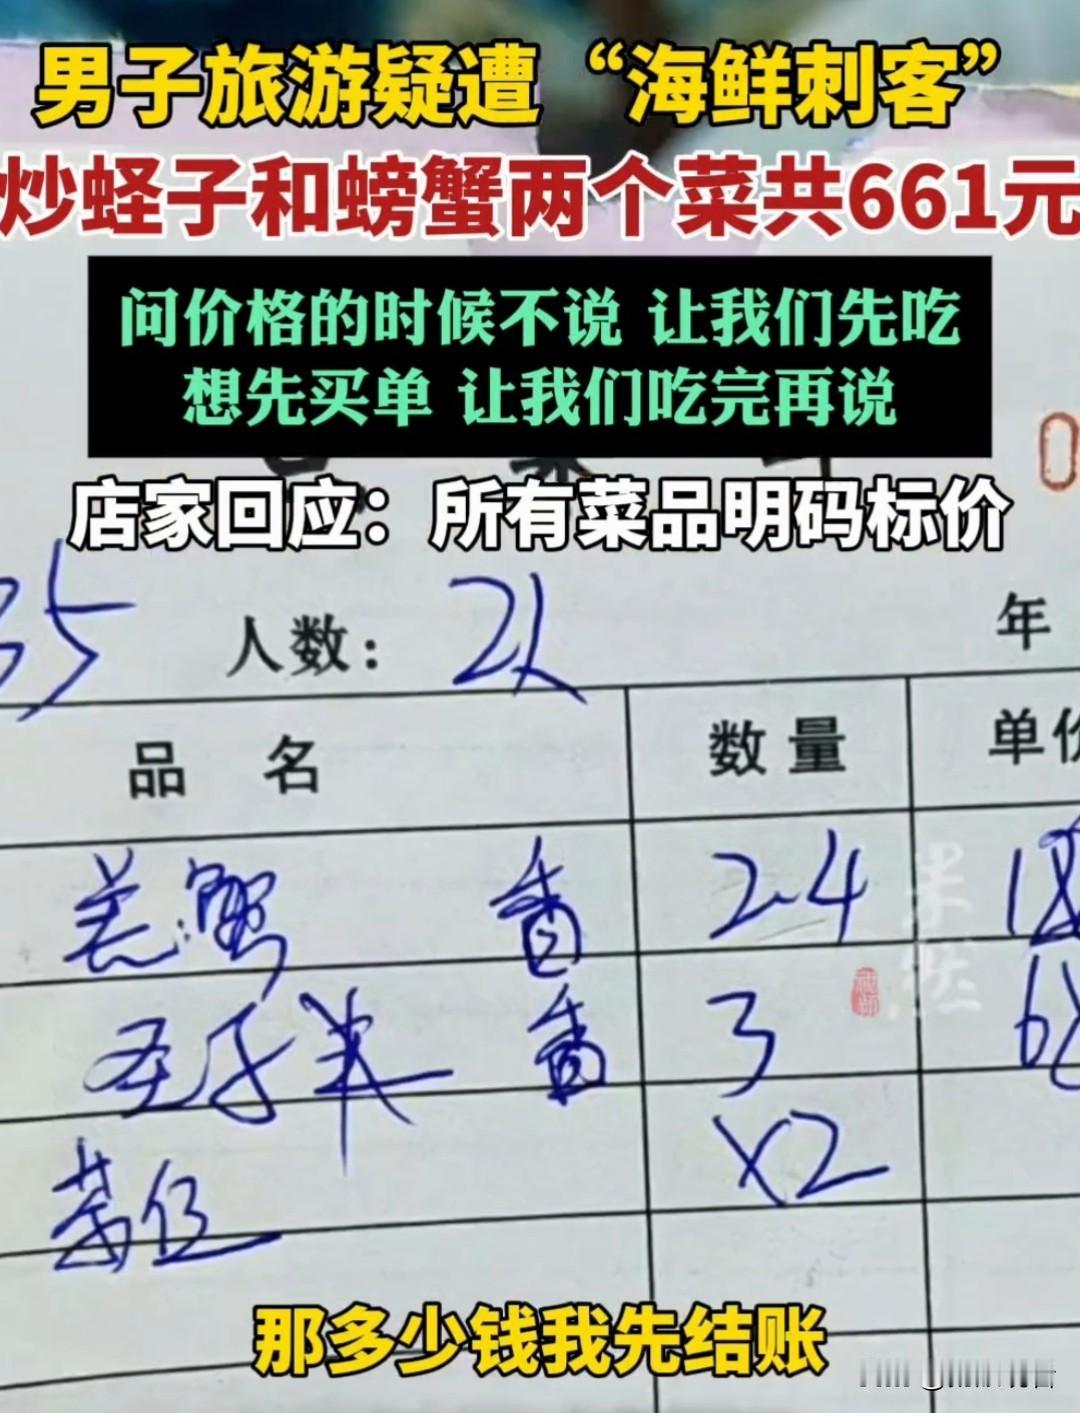 男子旅游疑遭“海鲜刺客”
炒蛏子和螃蟹两个菜共661元
问价格的时候不说 让我们先吃
想先买单 让我们吃完再说
店家回应：所有菜品明码标价
35 人数： 2人 年
品 名 数量 单价
羔蟹 香 2.4 18
圣子米 香 3 68
茶位 x2
那多少钱我先结账